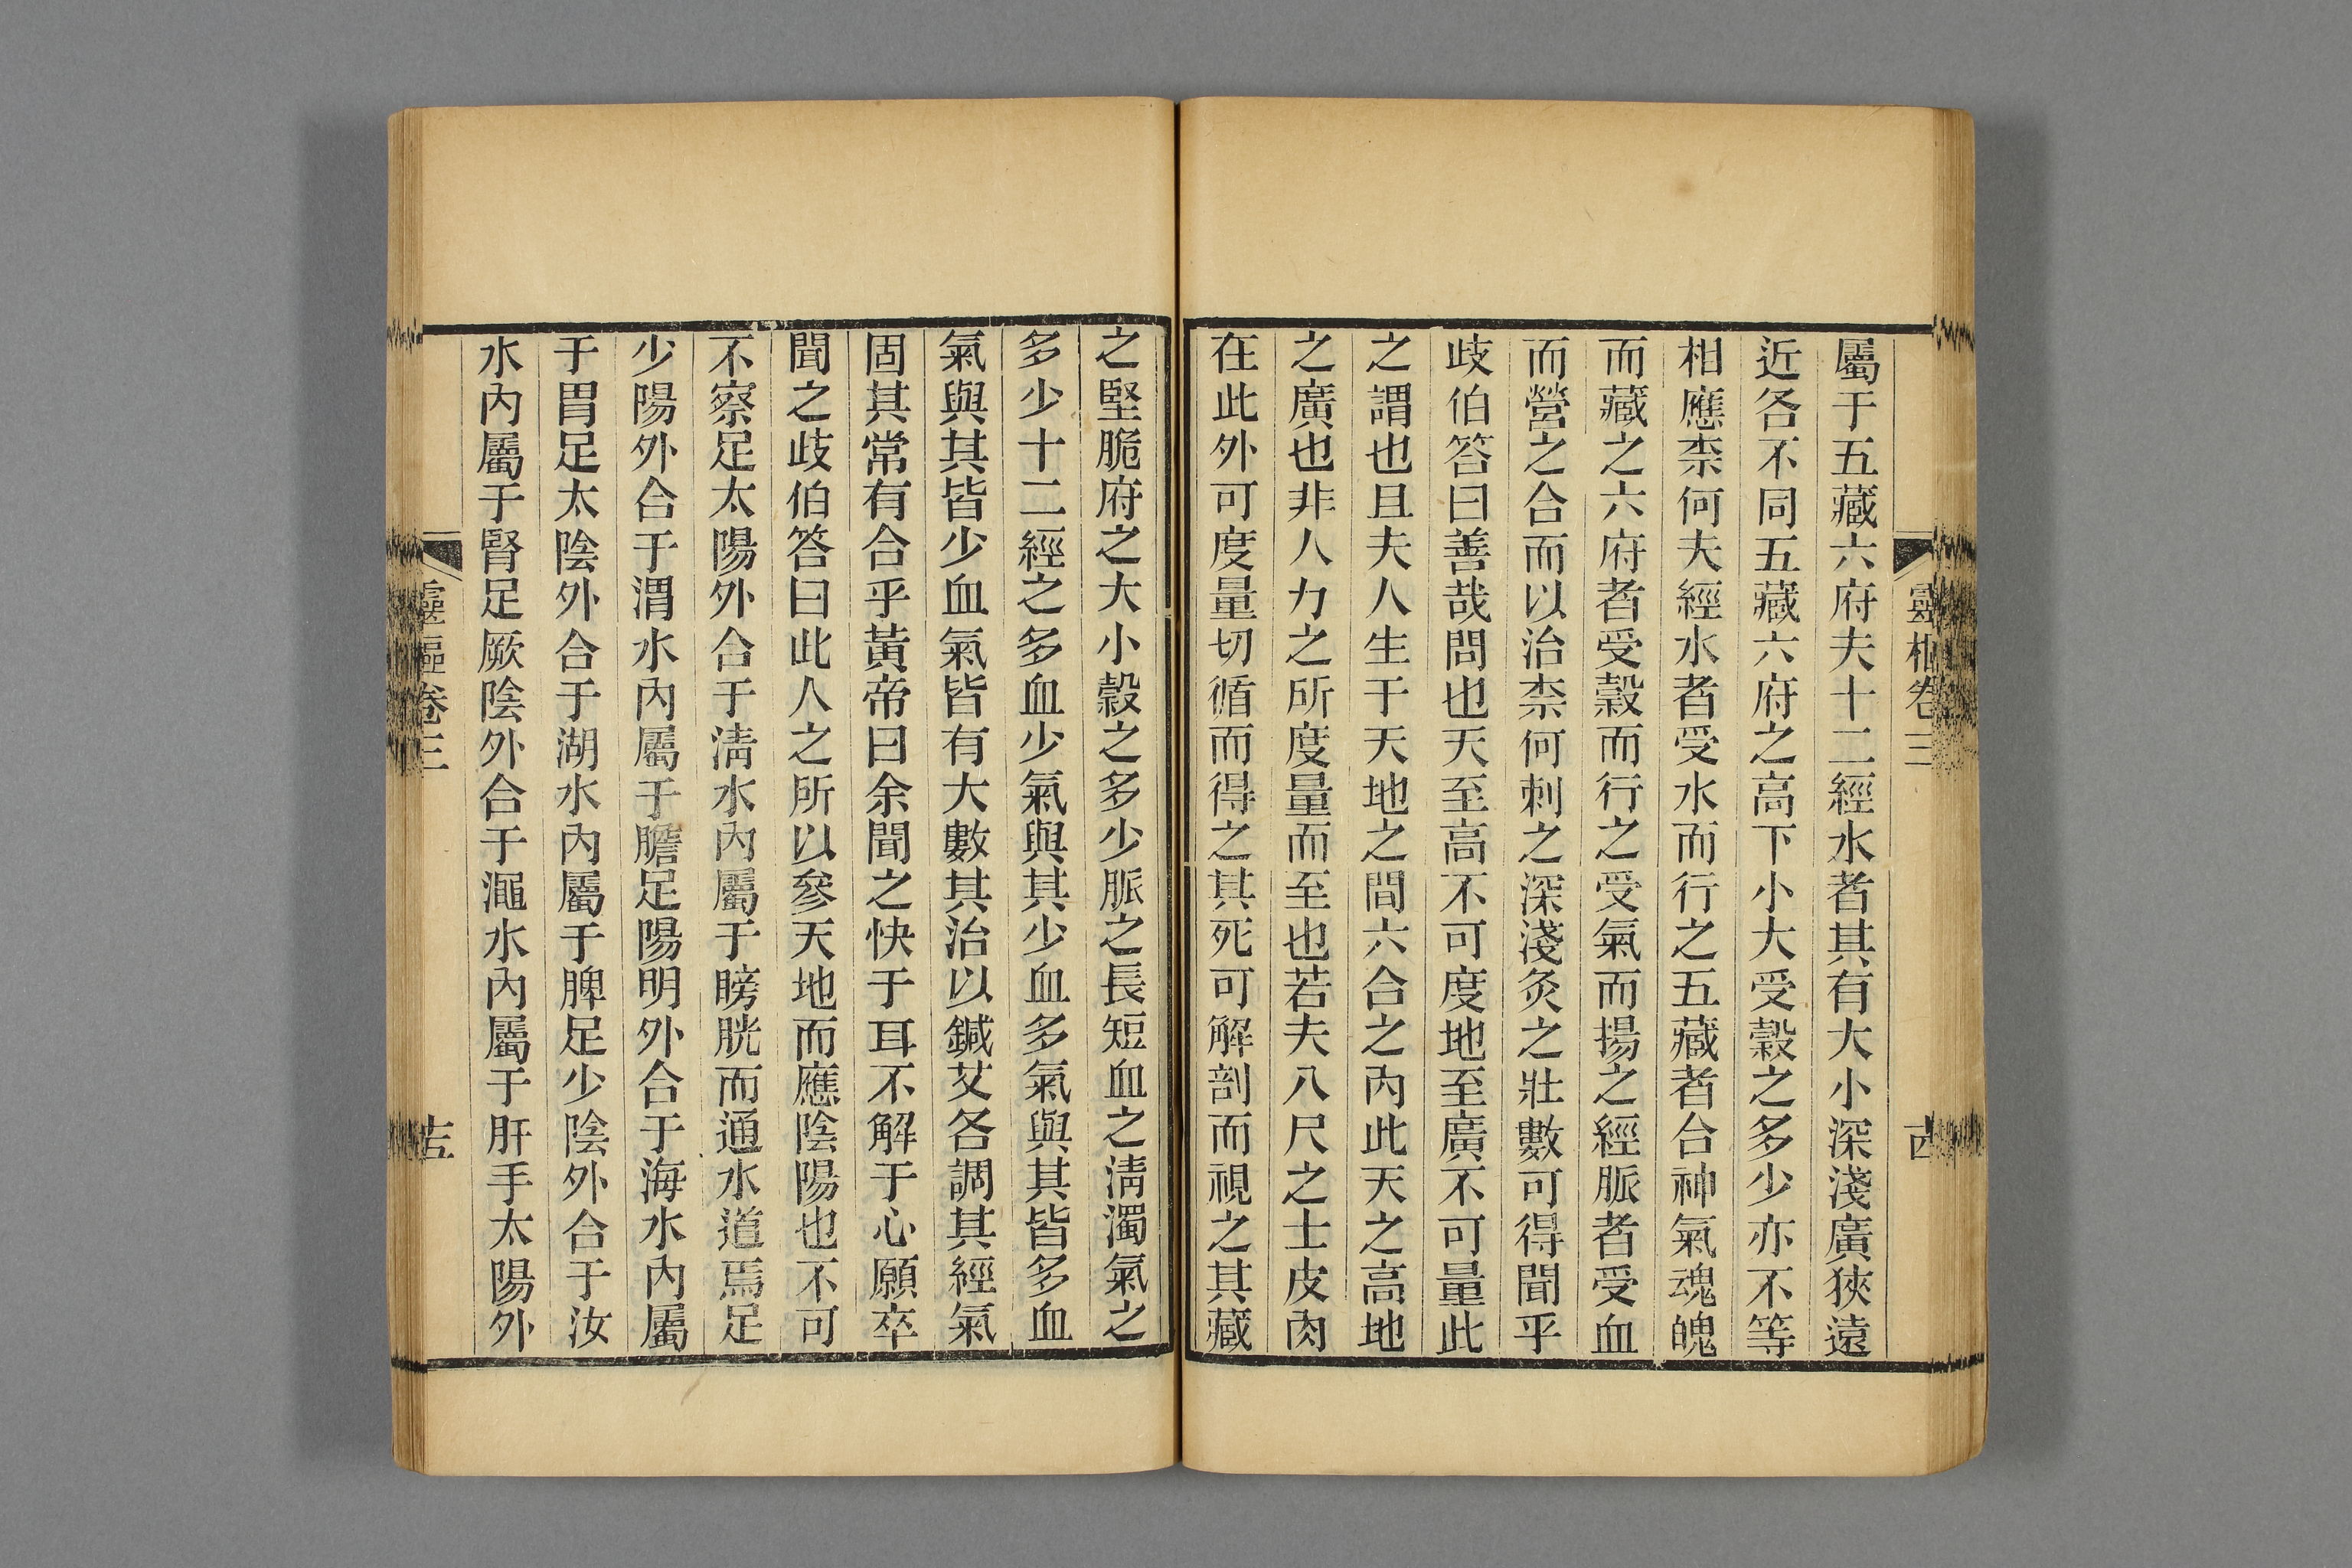 靈樞卷三
古
屬于五藏六府夫十二經水者其有大小深淺廣狹遠
近各不同五藏六府之高下小大受穀之多少亦不等
相應柰何夫經水者受水而行之五藏者合神氣魂魄
而藏之六府者受穀而行之受氣而揚之經脈者受血
而營之合而以治柰何刺之深淺灸之壯數可得聞乎
歧伯答曰善哉問也天至高不可度地至廣不可量此
之謂也且夫人生于天地之間六合之內此天之高地
之廣也非人力之所度量而至也若夫八尺之士皮肉
在此外可度量切循而得之其死可解剖而視之其藏
之堅脆府之大小穀之多少脈之長短血之清濁氣之
多少十二經之多血少氣與其少血多氣與其皆多血
氣與其皆少血氣皆有大數其治以鍼艾各調其經氣
固其常有合乎黃帝曰余聞之快于耳不解于心願卒
聞之歧伯答曰此人之所以參天地而應陰陽也不可
不察足太陽外合于清水內屬于膀胱而通水道焉足
少陽外合于渭水內屬于膽足陽明外合于海水內屬
于胃足太陰外合于湖水內屬于脾足少陰外合于汝
水內屬于腎足厥陰外合于澠水內屬于肝手太陽外
靈樞卷三
𠮷